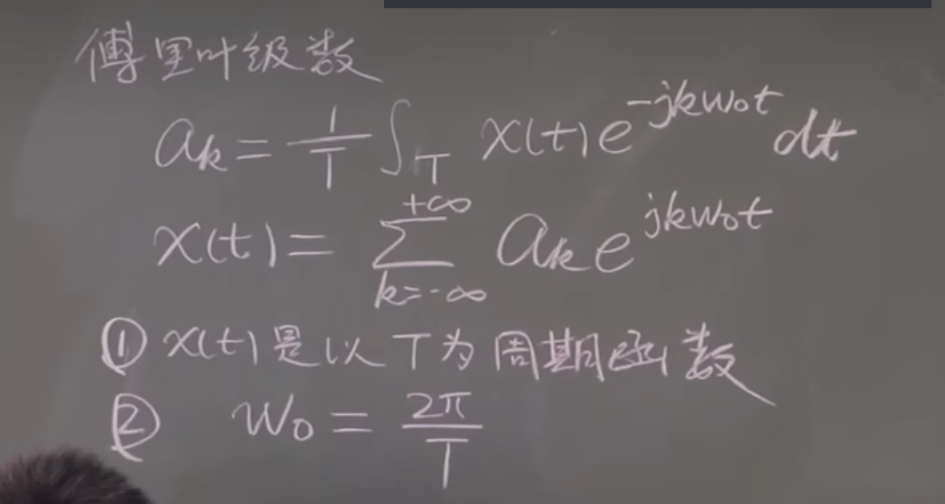 傅里叶级数
aₖ = 1/T ∫_T x(t)e^{-jkω₀t} dt
x(t) = ∑_{k=-∞}^{+∞} aₖ e^{jkω₀t}
① x(t)是以T为周期函数
② ω₀ = 2π/T